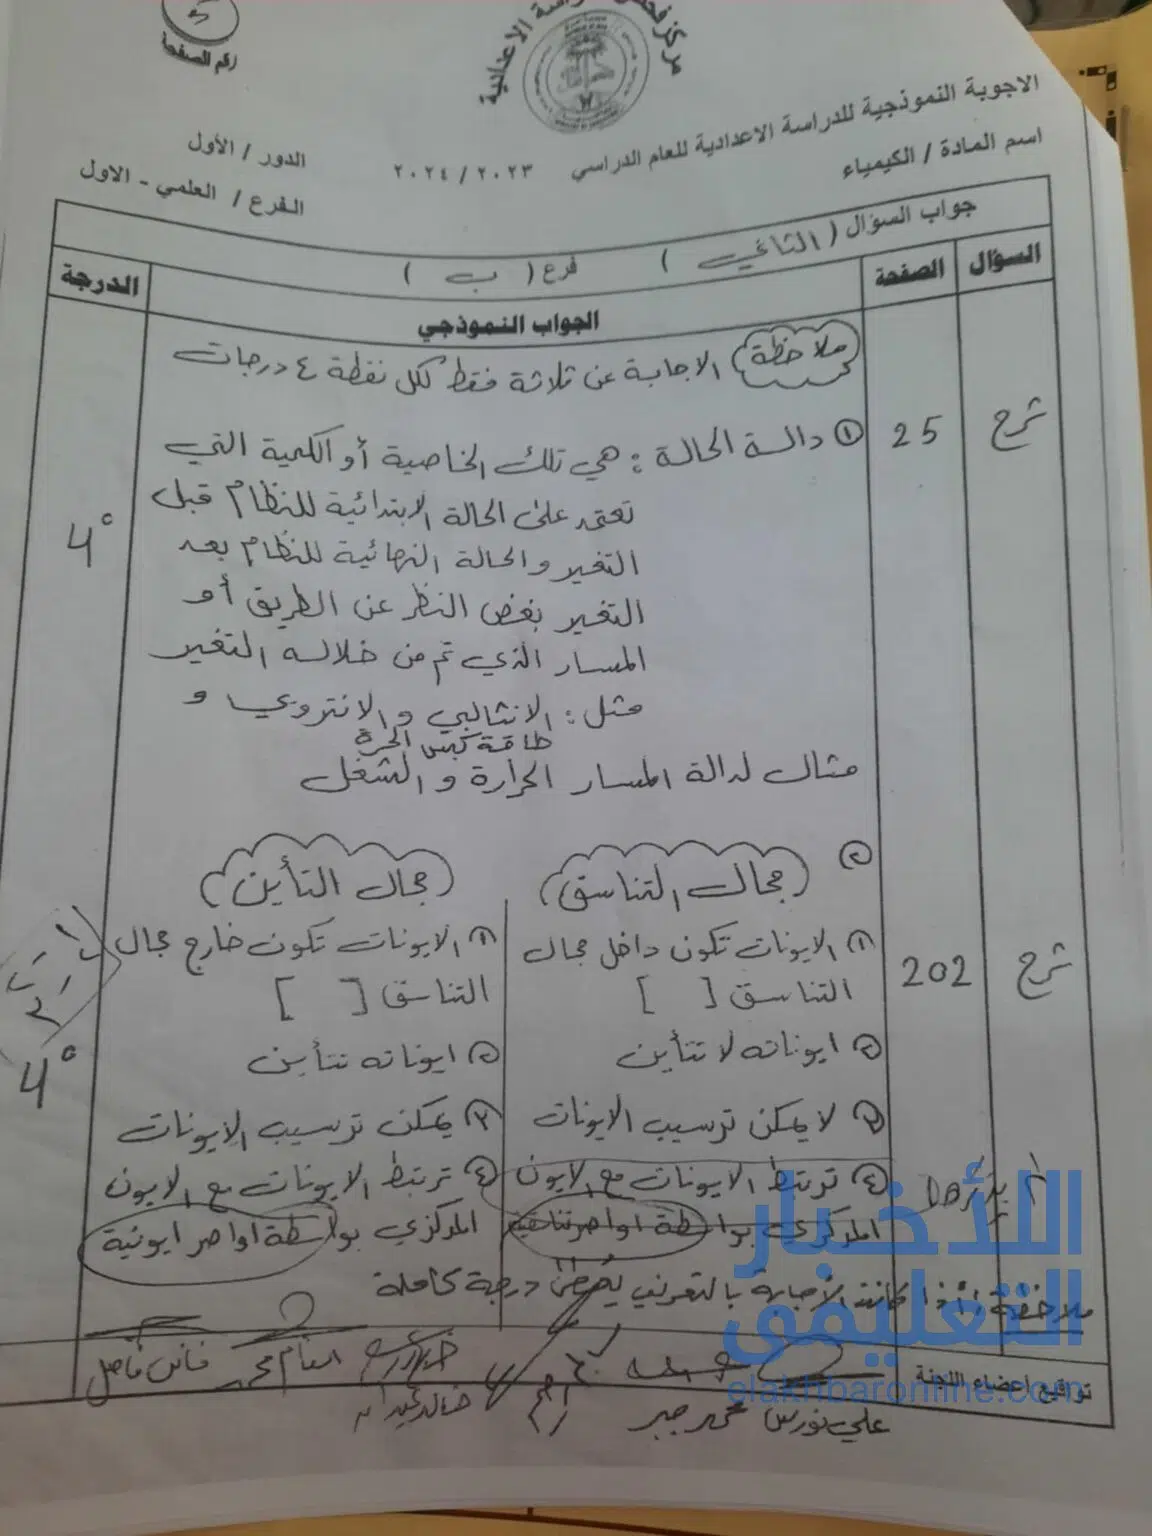 مركز فحص الدراسة الاعدادية
رقم الصفحة
الاجوبة النموذجية للدراسة الاعدادية للعام الدراسي ٢٠٢٣ / ٢٠٢٤
الدور / الأول
اسم المادة / الكيمياء
الفرع / العلمي - الاول
جواب السؤال ( الثاني ) فرع ( ب )
السؤال الصفحة الجواب النموذجي الدرجة
ملاحظة الاجابة عن ثلاثة فقط لكل نقطة ٤ درجات
شرح 25 ① دالة الحالة : هي تلك الخاصية أو الكمية التي
تعتمد على الحالة الابتدائية للنظام قبل
4°
التغير والحالة النهائية للنظام بعد
التغير بغض النظر عن الطريق أو
المسار الذي تم من خلاله التغير
مثل : الانثالبي والانتروبي و
طاقة كبس الحرة
مثال لدالة المسار الحرارة والشغل
② (مجال التناسق) (مجال التأين)
① الايونات تكون داخل مجال
التناسق [ ]
① الايونات تكون خارج مجال
التناسق [ ]
شرح 202
4°
② ايوناته لا تتأين
② ايوناته تتأين
③ لا يمكن ترسيب الايونات
③ يمكن ترسيب الايونات
④ ترتبط الايونات مع الايون
المركزي بواسطة اواصر تناسقية
④ ترتبط الايونات مع الايون
المركزي بواسطة اواصر ايونية
ملاحظة / أذا كانت الأجابة بالتعريف يعطى درجة كاملة
تواقيع اعضاء اللجنة
علي نورس محمد جبر
اللأخبار
التعليمي
elakhbaronline.com